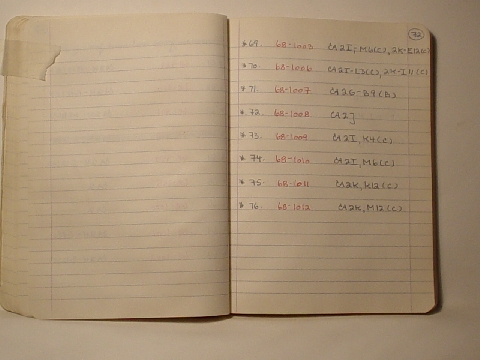 72
* 69. 68-1003 CA2I, M6(C), 2K-E12(C)
* 70. 68-1006 CA2I-L3(C), 2K-I11(C)
* 71. 68-1007 CA2G-B9(B)
* 72. 68-1008 CA2J
* 73. 68-1009 CA2I, K4(C)
* 74. 68-1010 CA2I, M6(C)
* 75. 68-1011 CA2K, K12(C)
* 76. 68-1012 CA2K, M12(C)